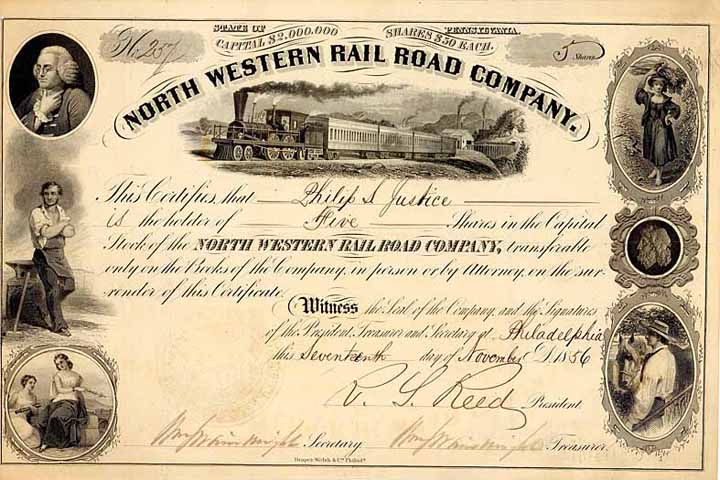 No. 257
STATE OF PENNSYLVANIA.
CAPITAL $2.000.000 SHARES $50 EACH.
5 Shares
NORTH WESTERN RAIL ROAD COMPANY.
This Certifies, that Philip S Justice
is the holder of Five Shares in the Capital
Stock of the NORTH WESTERN RAIL ROAD COMPANY, transferable
only on the Books of the Company, in person or by Attorney, on the sur-
render of this Certificate.
Witness the Seal of the Company, and the Signatures
of the President, Treasurer and Secretary at Philadelphia
this Seventeenth day of November A.D. 1856
R. S. Reed President.
Wm Wainwright Secretary Wm Wainwright Treasurer.
Draper, Welsh & Co. Philada.